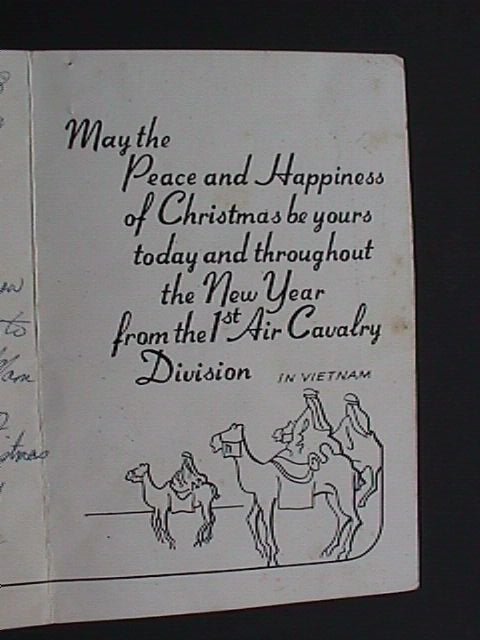 May the
Peace and Happiness
of Christmas be yours
today and throughout
the New Year
from the 1st Air Cavalry
Division IN VIETNAM
to